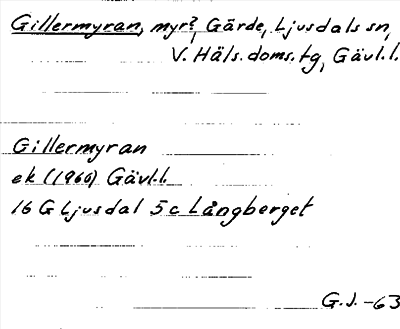 Gillermyran, myr?, Gärde, Ljusdals sn,
V. Häls. doms. tg, Gävl.l.
Gillermyran
ek (1960) Gävl.l.
16 G Ljusdal 5c Långberget
G.J. -63